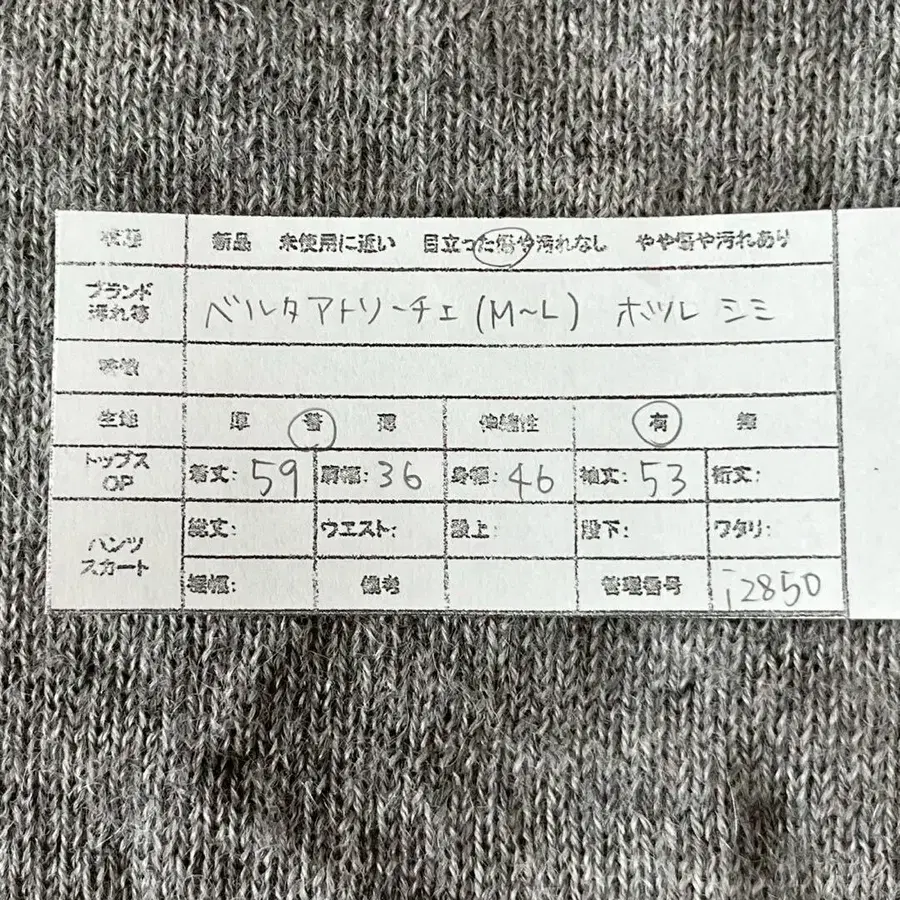 状態 新品 未使用に近い 目立った傷や汚れなし やや傷や汚れあり
ブランド
汚れ等 ベルタアトリーチェ (M~L) ホツレ シミ
生地 厚 普 薄 伸縮性 有 無
トップス
OP 着丈: 59 肩幅: 36 身幅: 46 袖丈: 53 裄丈:
パンツ
スカート 総丈: ウエスト: 股上: 股下: ワタリ:
裾幅: 備考 管理番号 i2850